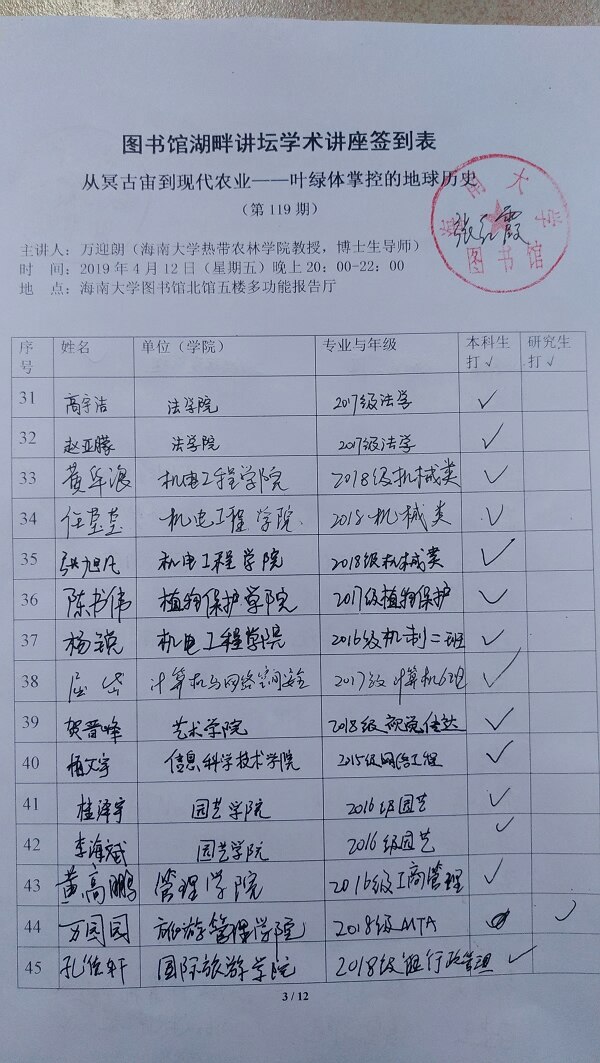 图书馆湖畔讲坛学术讲座签到表
从冥古宙到现代农业——叶绿体掌控的地球历史
（第 119 期）
海南大学
图书馆
张红霞
主讲人：万迎朗（海南大学热带农林学院教授，博士生导师）
时　间：2019 年 4 月 12 日（星期五）晚上 20：00-22：00
地　点：海南大学图书馆北馆五楼多功能报告厅
序号 姓名 单位（学院） 专业与年级 本科生打√ 研究生打√
31 高宇洁 法学院 2017级法学 √
32 赵亚朦 法学院 2017级法学 √
33 黄华浪 机电工程学院 2018级机械类 √
34 任莹莹 机电工程学院 2018机械类 √
35 张旭凡 机电工程学院 2018级机械类 √
36 陈书伟 植物保护学院 2017级植物保护 √
37 杨锐 机电工程学院 2016级机制二班 √
38 屈岱 计算机与网络空间安全 2017级计算机6班 √
39 贺晋峰 艺术学院 2018级视觉传达 √
40 杨文宇 信息科学技术学院 2015级网络工程 √
41 桂泽宇 园艺学院 2016级园艺 √
42 李海斌 园艺学院 2016级园艺 √
43 黄高鹏 管理学院 2016级工商管理 √
44 万园园 旅游管理学院 2018级MTA √
45 孔俊轩 国际旅游学院 2018级行政管理 √
3 / 12